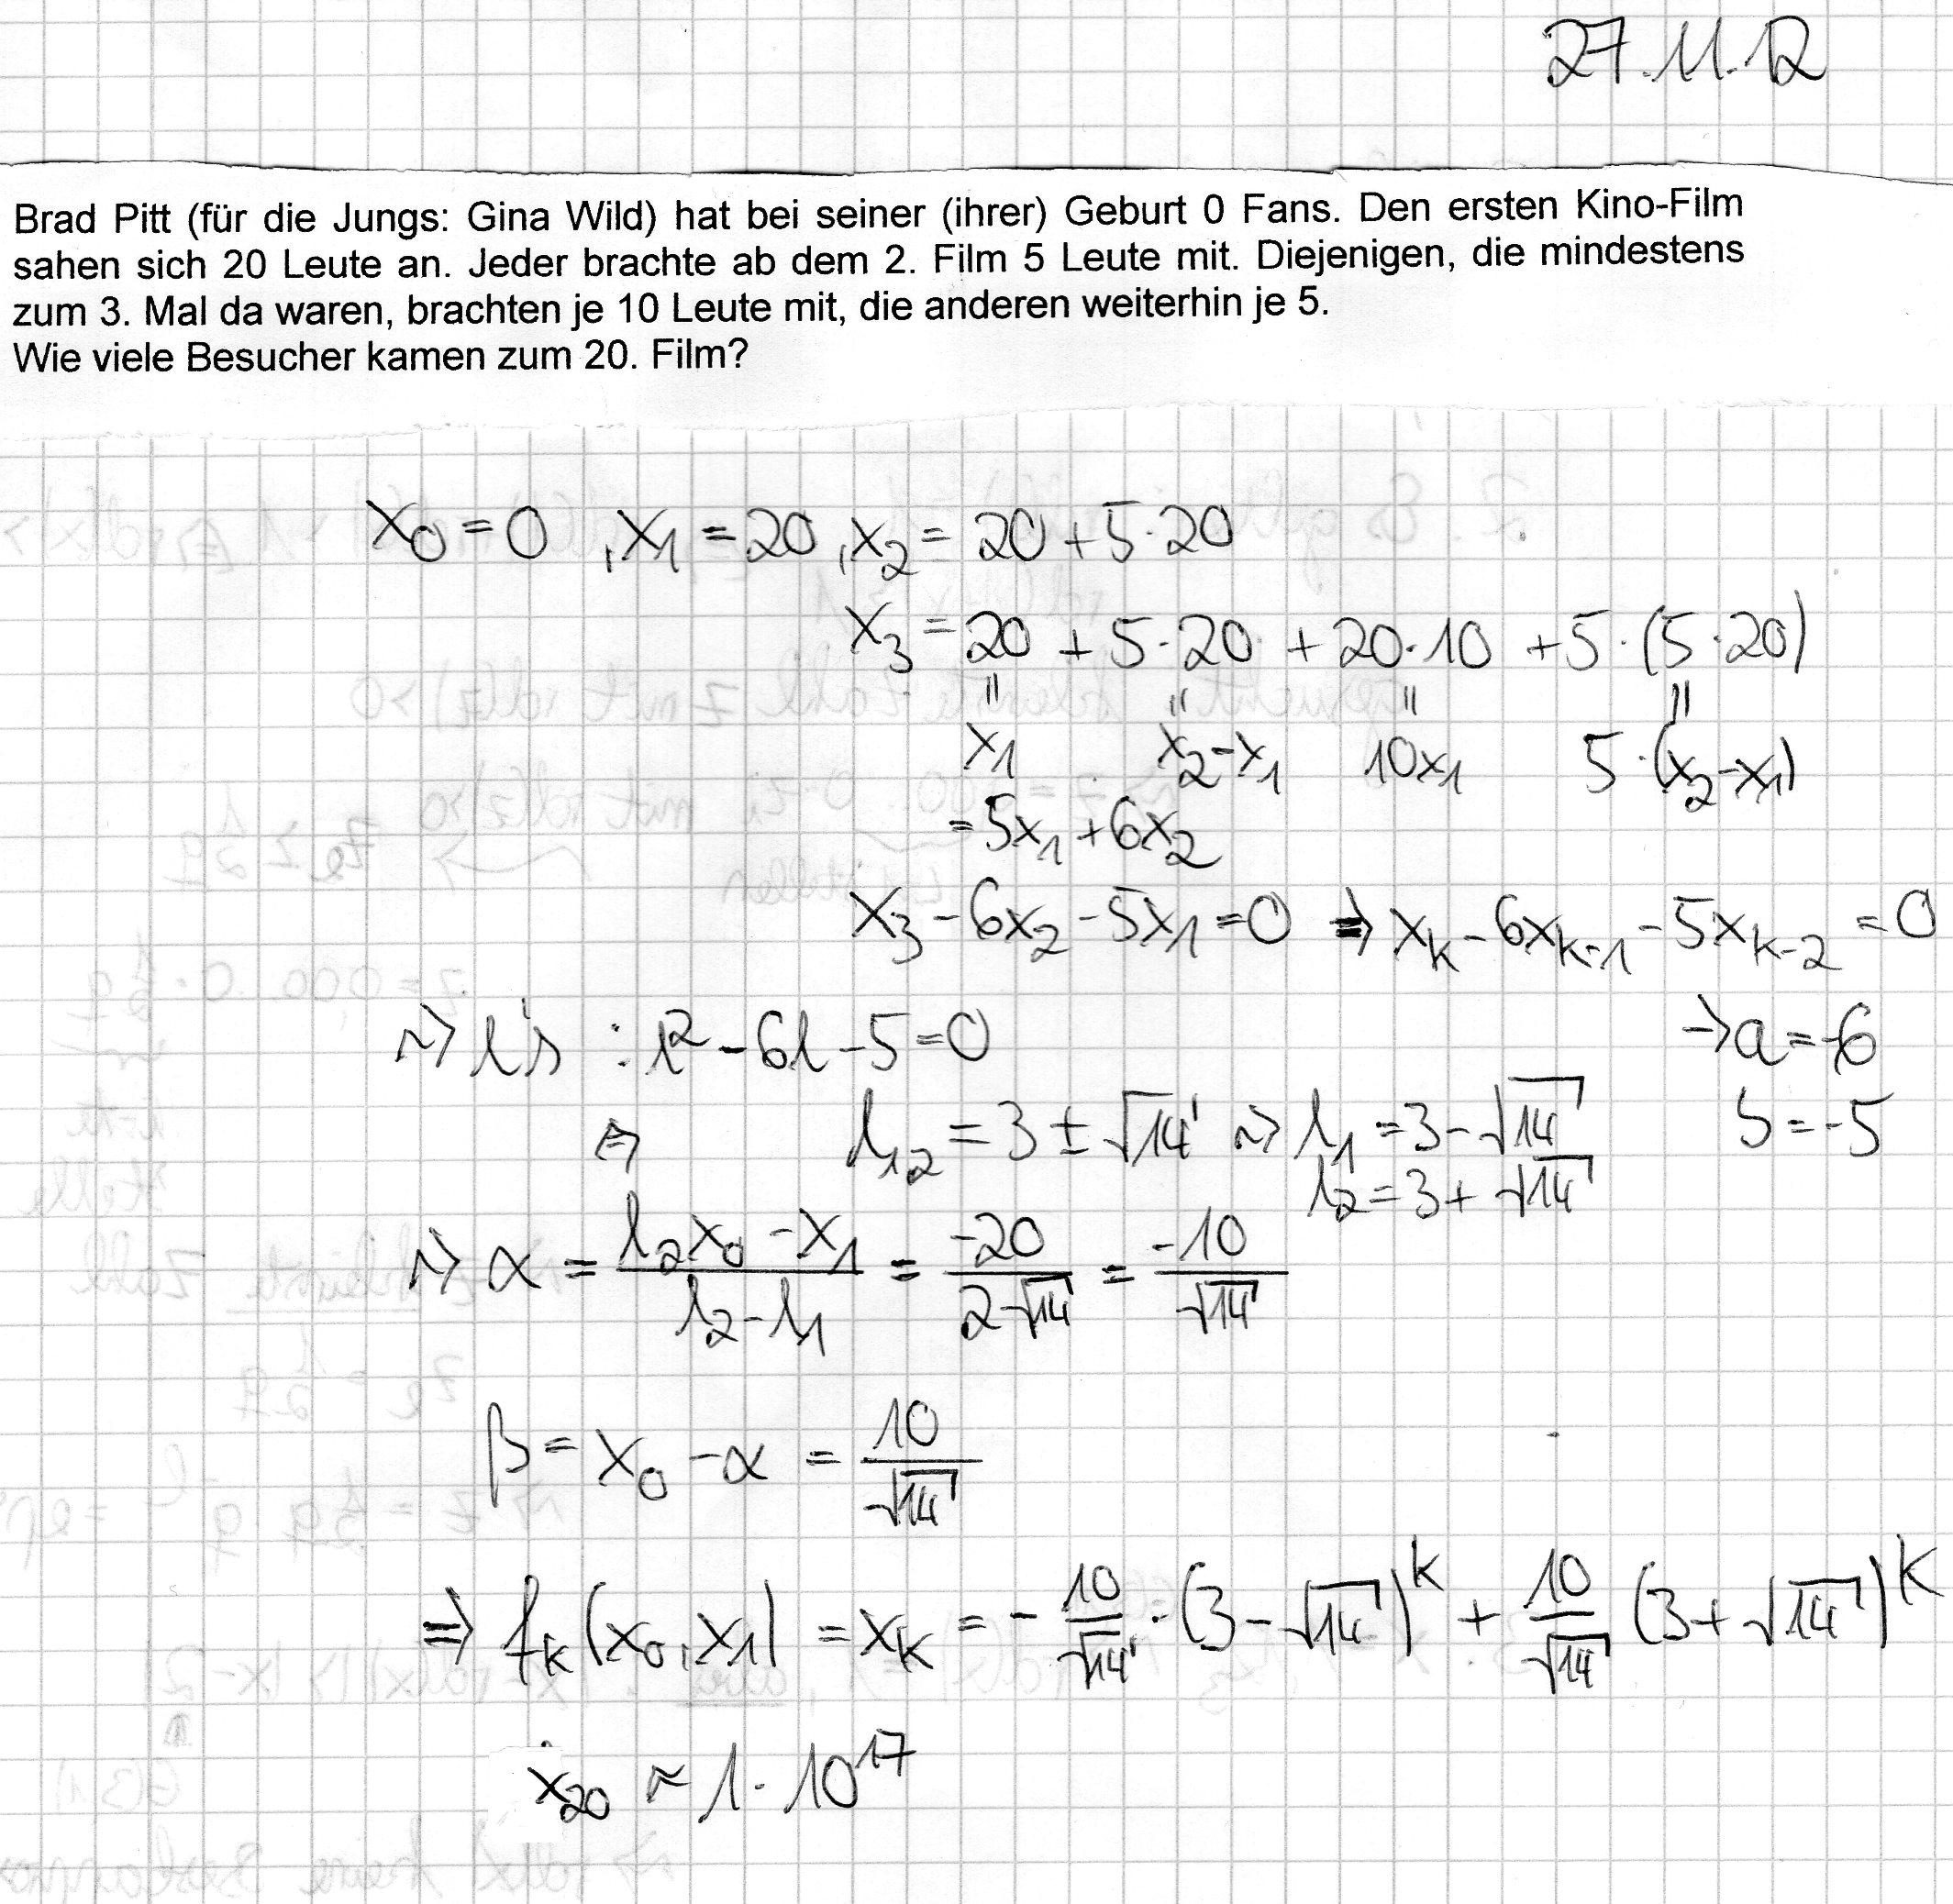 27.11.12
Brad Pitt (für die Jungs: Gina Wild) hat bei seiner (ihrer) Geburt 0 Fans. Den ersten Kino-Film
sahen sich 20 Leute an. Jeder brachte ab dem 2. Film 5 Leute mit. Diejenigen, die mindestens
zum 3. Mal da waren, brachten je 10 Leute mit, die anderen weiterhin je 5.
Wie viele Besucher kamen zum 20. Film?
x₀ = 0 , x₁ = 20 , x₂ = 20 + 5·20
x₃ = 20 + 5·20 + 20·10 + 5·(5·20)
= = = =
x₁ x₂-x₁ 10x₁ 5·(x₂-x₁)
= 5x₁ + 6x₂
x₃ - 6x₂ - 5x₁ = 0 ⇒ x_k - 6x_{k-1} - 5x_{k-2} = 0
⇝ l's : l² - 6l - 5 = 0 → a = -6
⇔ l₁₂ = 3 ± √14 ⇝ l₁ = 3 - √14 b = -5
l₂ = 3 + √14
⇝ α = (l₂x₀ - x₁)/(l₂ - l₁) = -20/(2√14) = -10/√14
β = x₀ - α = 10/√14
⇒ f_k(x₀, x₁) = x_k = - 10/√14 · (3 - √14)^k + 10/√14 (3 + √14)^k
x₂₀ ≈ 1 · 10¹⁷